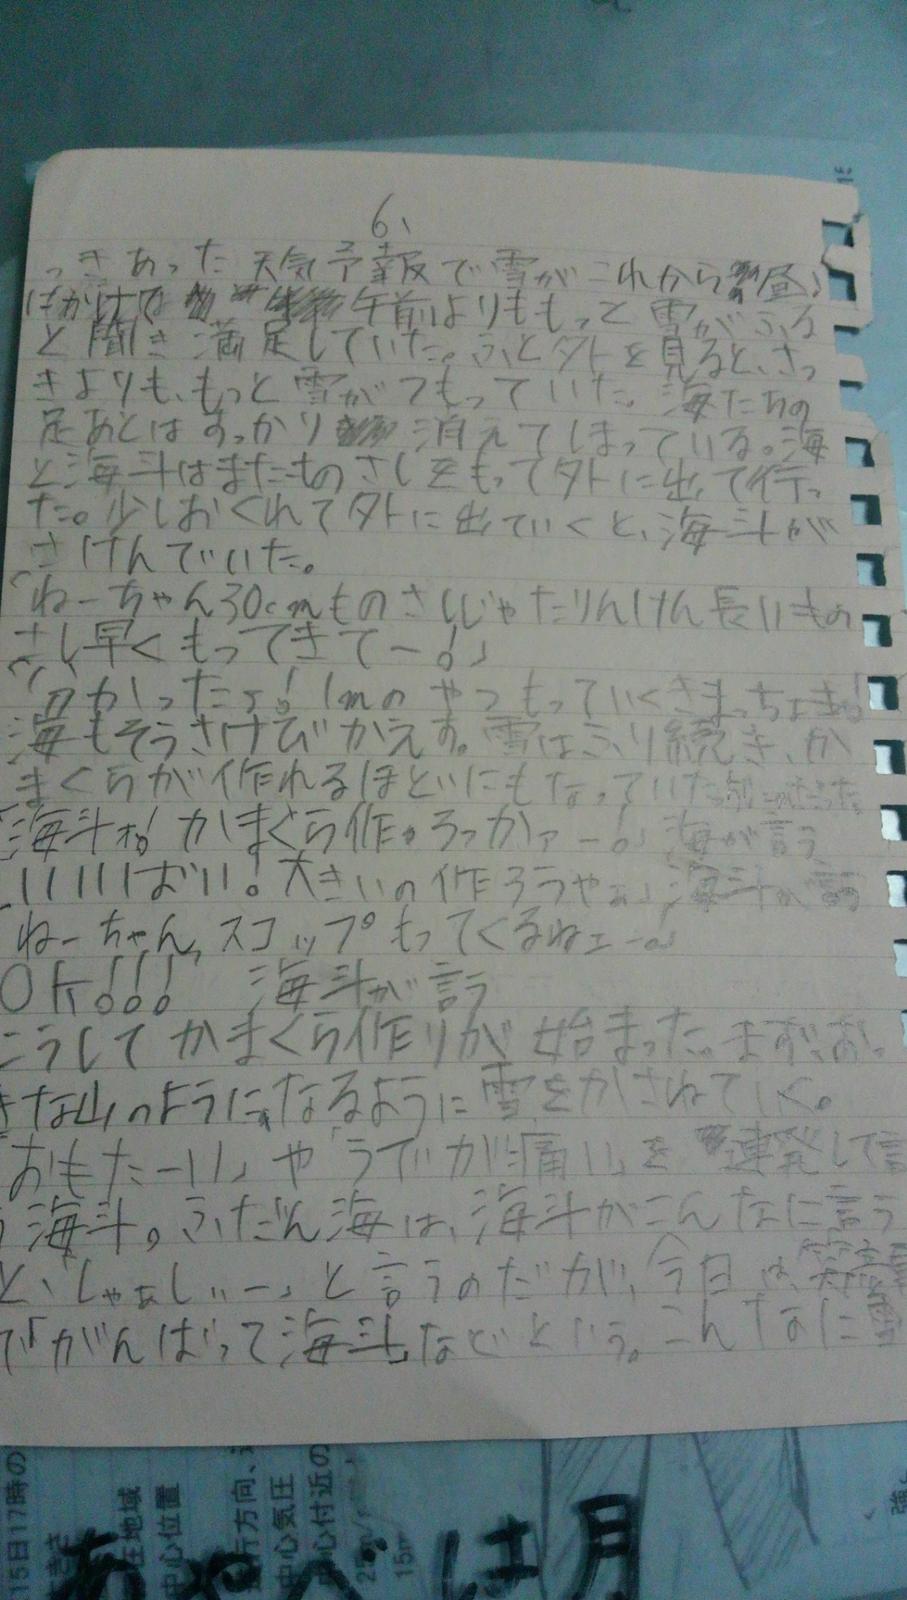 6、
っきあった天気予報で雪がこれから昼に
かけて午前よりももっと雪がふる
と聞き満足していた。ふと外を見ると、さっ
きよりも、もっと雪がつもっていた。海たちの
足あとはすっかり消えてしまっている。海
と海斗はまたものさしをもって外に出て行っ
た。少しおくれて外に出ていくと、海斗が
さけんでいた。
「ねーちゃん30cmものさしじゃたりんけん長いもの
さし早くもってきてー!」
かったァ!1mのやつもっていくきまっちょき!
海もそうさけびかえす。雪はふり続き、か
まくらが作れるほどにもなっていた
「海斗ォ!かまくら作ろっかァー!」海が言う
いいいばい!大きいの作ろうやぁ」海斗が言う
ねーちゃん、スコップもってくるねェー!」
OK!!! 海斗が言う
こうしてかまくら作りが始まった。まず、お
きな山のように、なるように雪をかさねていく。
「おもたーい」や「うでが痛い」を連発して言
う海斗。ふだん海は、海斗がこんなに言う
と、「しゃぁしぃー」と言うのだが、今日は、
で「がんばって海斗」などという。こんなに
15日17時の
在地域
中心位置
進行方向、
中心気圧
中心付近の
15m
は月
強